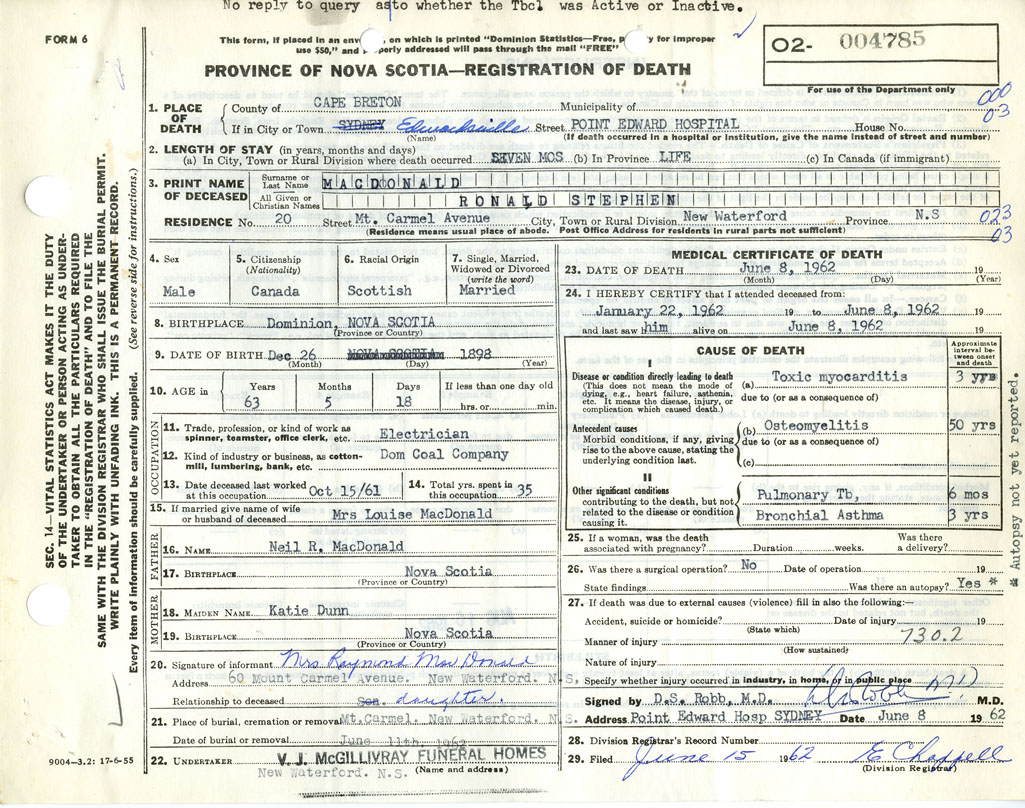 No reply to query as to whether the Tbcl was Active or Inactive.
FORM 6
This form, if placed in an envelope, on which is printed "Dominion Statistics—Free, penalty for improper
use $50," and properly addressed will pass through the mail "FREE"
PROVINCE OF NOVA SCOTIA—REGISTRATION OF DEATH
O2- 004785
For use of the Department only
000
03
1. PLACE OF DEATH
County of CAPE BRETON Municipality of
If in City or Town SYDNEY Edwardsville Street POINT EDWARD HOSPITAL House No.
(Name) (If death occurred in a hospital or institution, give the name instead of street and number)
2. LENGTH OF STAY (in years, months and days)
(a) In City, Town or Rural Division where death occurred SEVEN MOS (b) In Province LIFE (c) In Canada (if immigrant)
3. PRINT NAME OF DECEASED
Surname or Last Name MACDONALD
All Given or Christian Names RONALD STEPHEN
RESIDENCE No. 20 Street Mt. Carmel Avenue City, Town or Rural Division New Waterford Province N.S
(Residence means usual place of abode. Post Office Address for residents in rural parts not sufficient)
023
03
4. Sex
Male
5. Citizenship
(Nationality)
Canada
6. Racial Origin
Scottish
7. Single, Married, Widowed or Divorced
(write the word)
Married
8. BIRTHPLACE Dominion, NOVA SCOTIA
(Province or Country)
9. DATE OF BIRTH Dec 26 NOVA SCOTIA 1898
(Month) (Day) (Year)
10. AGE in
Years 63
Months 5
Days 18
If less than one day old
hrs. or min.
OCCUPATION
11. Trade, profession, or kind of work as spinner, teamster, office clerk, etc. Electrician
12. Kind of industry or business, as cotton-mill, lumbering, bank, etc. Dom Coal Company
13. Date deceased last worked at this occupation Oct 15/61
14. Total yrs. spent in this occupation 35
15. If married give name of wife or husband of deceased Mrs Louise MacDonald
FATHER
16. NAME Neil R. MacDonald
17. BIRTHPLACE Nova Scotia
(Province or Country)
MOTHER
18. MAIDEN NAME Katie Dunn
19. BIRTHPLACE Nova Scotia
(Province or Country)
20. Signature of informant Mrs Raymond MacDonald
Address 60 Mount Carmel Avenue. New Waterford. N.S.
Relationship to deceased Son. daughter.
21. Place of burial, cremation or removal Mt.Carmel. New Waterford. N.S.
Date of burial or removal June 11th. 1962
22. UNDERTAKER V. J. McGILLIVRAY FUNERAL HOMES
New Waterford. N.S. (Name and address)
9004—3.2: 17-6-55
MEDICAL CERTIFICATE OF DEATH
23. DATE OF DEATH June 8, 1962 19
(Month) (Day) (Year)
24. I HEREBY CERTIFY that I attended deceased from:
January 22, 1962 19 to June 8, 1962 19
and last saw him alive on June 8, 1962 19
CAUSE OF DEATH
Approximate interval between onset and death
I
Disease or condition directly leading to death
(This does not mean the mode of dying, e.g., heart failure, asthenia, etc. It means the disease, injury, or complication which caused death.)
(a) Toxic myocarditis 3 yrs
due to (or as a consequence of)
Antecedent causes
Morbid conditions, if any, giving rise to the above cause, stating the underlying condition last.
(b) Osteomyelitis 50 yrs
due to (or as a consequence of)
(c)
II
Other significant conditions
contributing to the death, but not related to the disease or condition causing it.
Pulmonary Tb, 6 mos
Bronchial Asthma 3 yrs
25. If a woman, was the death associated with pregnancy? Duration weeks. Was there a delivery?
26. Was there a surgical operation? No Date of operation 19
State findings Was there an autopsy? Yes *
27. If death was due to external causes (violence) fill in also the following:—
Accident, suicide or homicide? Date of injury 19
(State which)
Manner of injury 730.2
(How sustained)
Nature of injury
Specify whether injury occurred in industry, in home, or in public place
Signed by D.S. Robb, M.D. DS Robb MD M.D.
Address Point Edward Hosp SYDNEY Date June 8 1962
28. Division Registrar's Record Number
29. Filed June 15 1962 E Chappell
(Division Registrar)
* Autopsy not yet reported.
SEC. 14—VITAL STATISTICS ACT MAKES IT THE DUTY
OF THE UNDERTAKER OR PERSON ACTING AS UNDER-
TAKER TO OBTAIN ALL THE PARTICULARS REQUIRED
IN THE "REGISTRATION OF DEATH" AND TO FILE THE
SAME WITH THE DIVISION REGISTRAR WHO SHALL ISSUE THE BURIAL PERMIT.
WRITE PLAINLY WITH UNFADING INK. THIS IS A PERMANENT RECORD.
Every item of information should be carefully supplied. (See reverse side for instructions.)